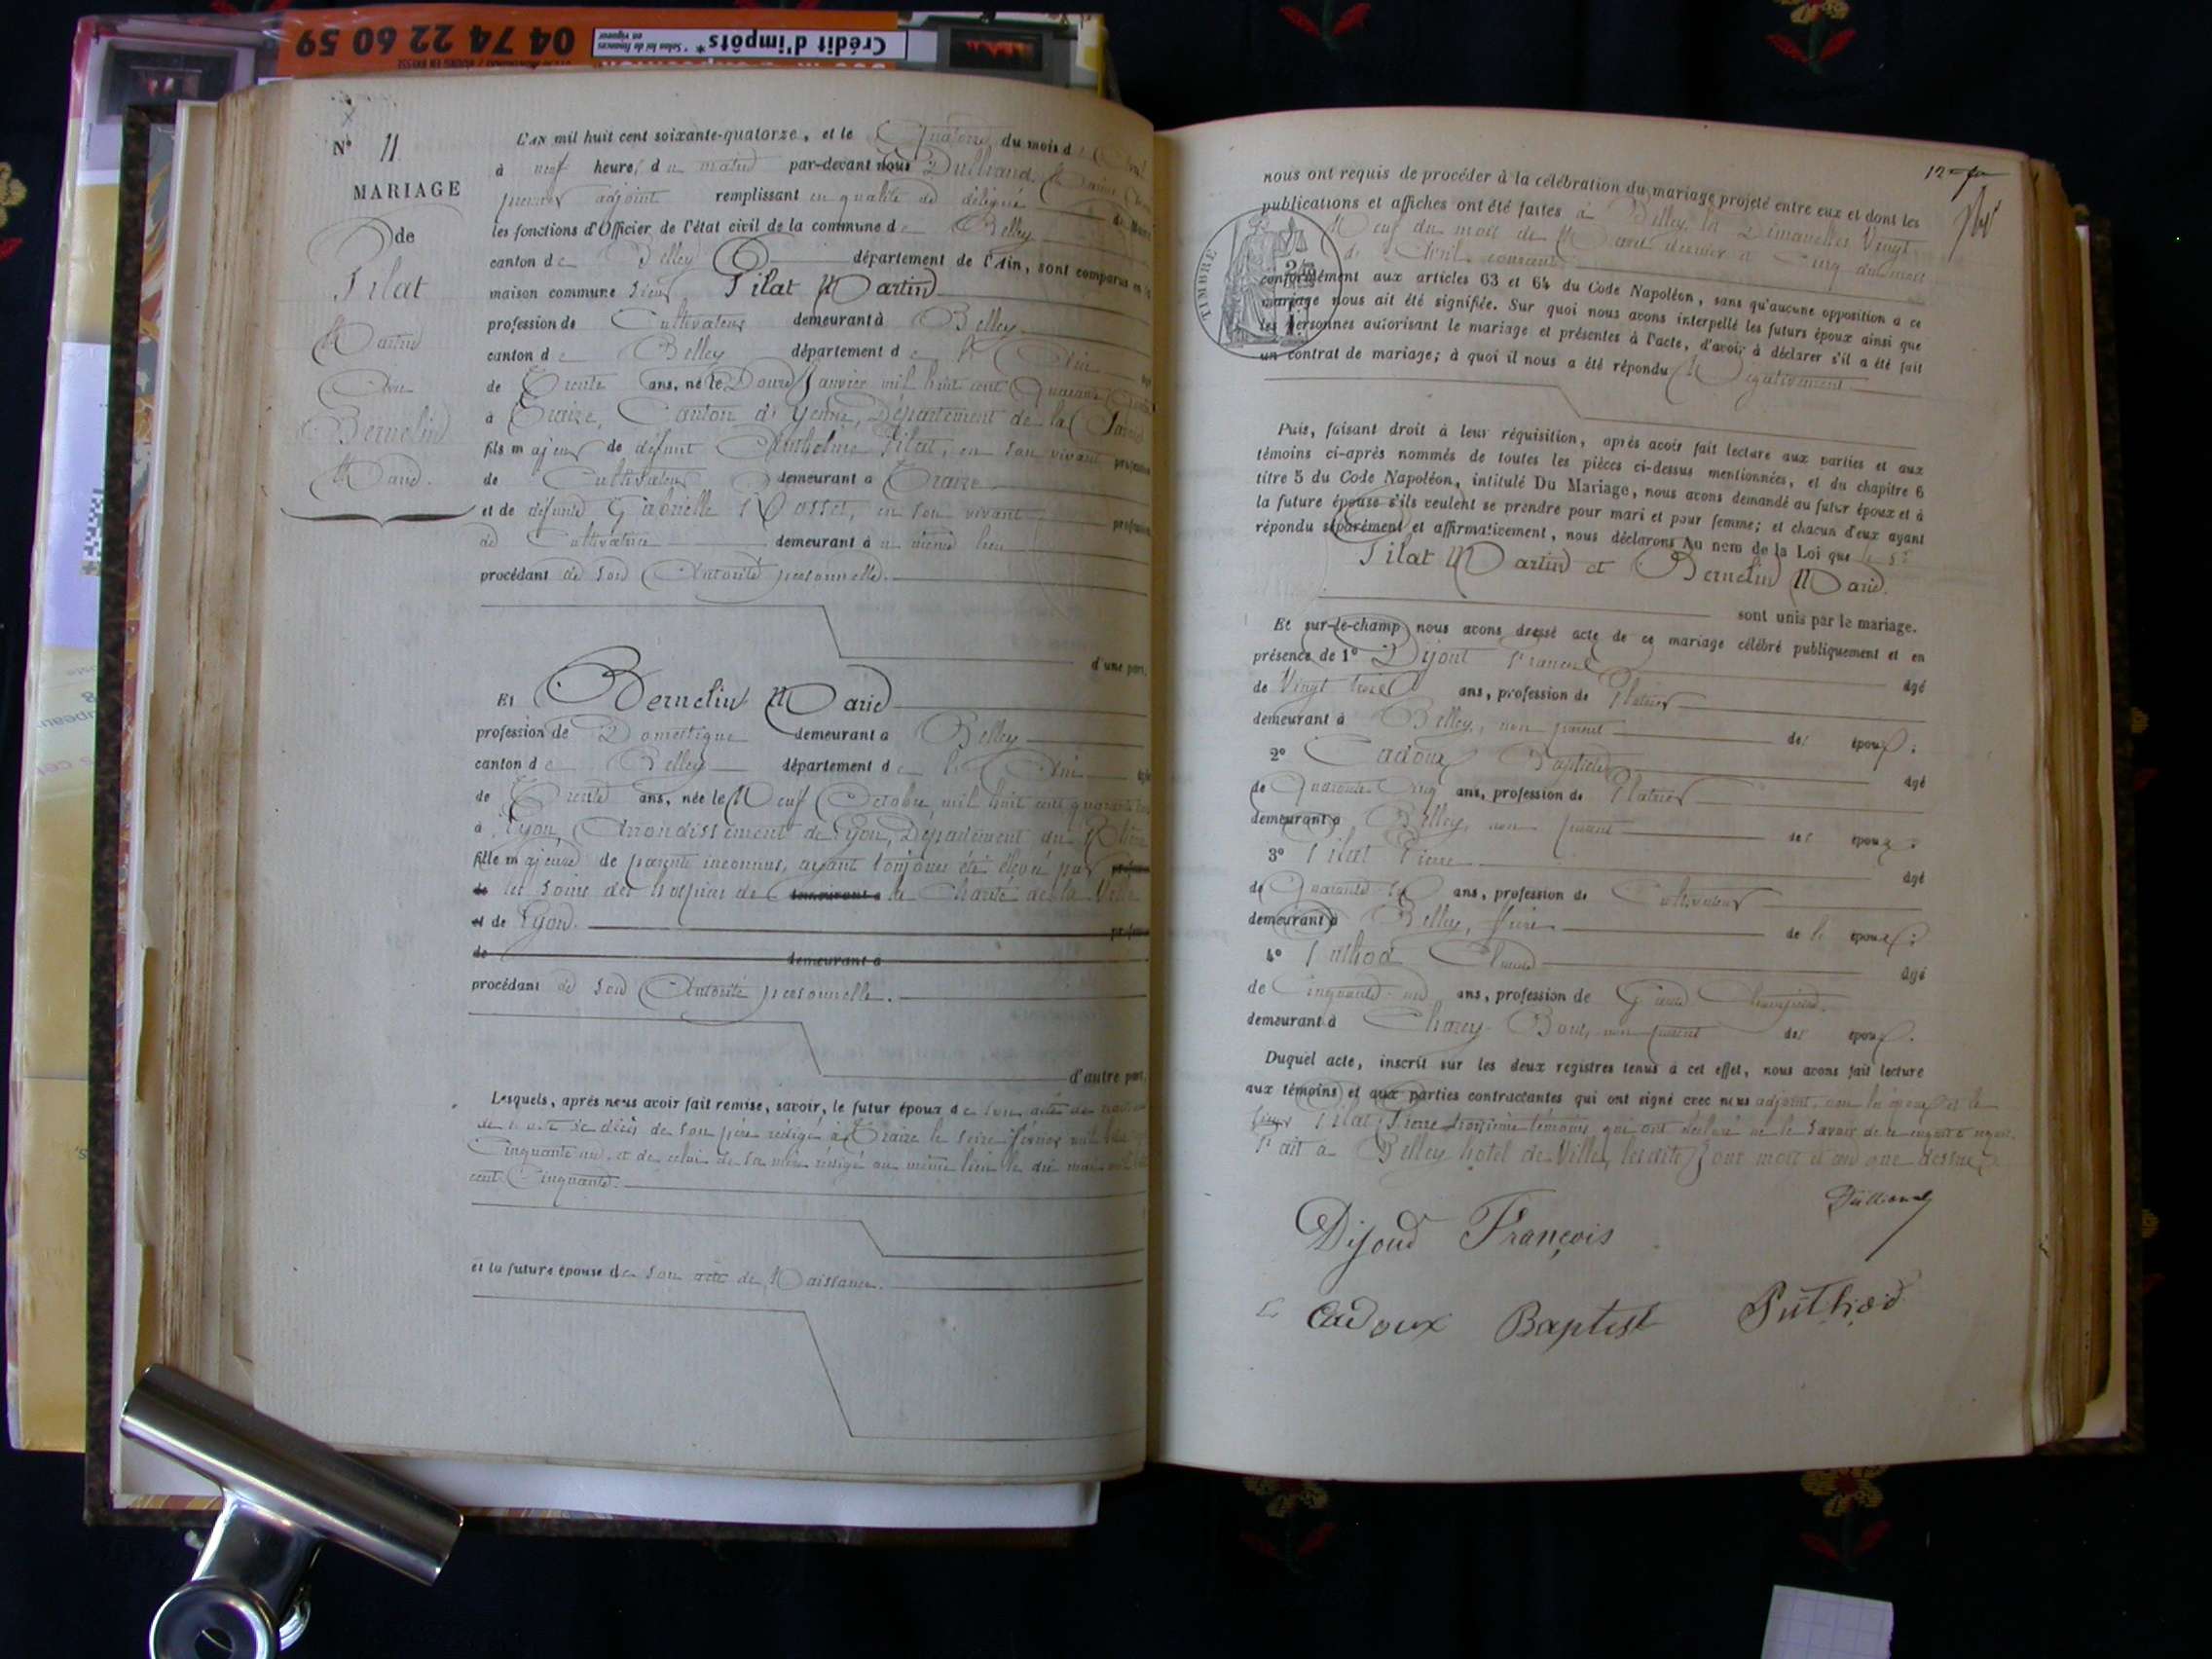 04 74 22 60 59
Crédit d'impôts*
* Selon loi de finances
en vigueur
N° 11
MARIAGE
de
Pilat
Martin
Avec
Bernelin
Marie.
L'AN mil huit cent soixante-quatorze, et le Quatorze du mois d'Avril
à neuf heures du matin par-devant nous
premier adjoint remplissant en qualité de délégué
les fonctions d'Officier de l'état civil de la commune de Belley
canton de Belley département de l'Ain, sont comparus en la
maison commune Sieur Pilat Martin
profession de Cultivateur demeurant à Belley
canton de Belley département de l'Ain
de Trente ans, né le Douze Janvier mil huit cent Quarante
à Traize, Canton de Yenne, Département de la Savoie
fils majeur de défunt Anthelme Pilat, en son vivant profession
de Cultivateur demeurant à Traize
et de défunte Gabrielle Rosset, en son vivant profession
de Cultivatrice demeurant à u même lieu
procédant de son Autorité personnelle.
d'une part.
Et Bernelin Marie
profession de Domestique demeurant à Belley
canton de Belley département de l'Ain
de Trente ans, née le Neuf Octobre mil huit cent quarante
à Lyon, Arrondissement de Lyon, Département du Rhône
fille majeure de parents inconnus, ayant toujours été élevée par
les soins des hospices de demeurant à la Charité de la Ville
et de Lyon.
de demeurant à
procédant de son Autorité personnelle.
d'autre part.
Lesquels, après nous avoir fait remise, savoir, le futur époux de son acte de naissance
de l'acte de décès de son père rédigé à Traize le seize février mil huit
Cinquante un, et de celui de sa mère rédigé au même lieu le dix mai mil huit
cent Cinquante.
et la future épouse de son acte de Naissance.
12
nous ont requis de procéder à la célébration du mariage projeté entre eux et dont les
publications et affiches ont été faites à Belley, les Dimanches Vingt
Neuf du mois de Mars dernier et Cinq du mois
d'Avril courant
conformément aux articles 63 et 64 du Code Napoléon, sans qu'aucune opposition à ce
mariage nous ait été signifiée. Sur quoi nous avons interpellé les futurs époux ainsi que
les personnes autorisant le mariage et présentes à l'acte, d'avoir à déclarer s'il a été fait
un contrat de mariage; à quoi il nous a été répondu Négativement
TIMBRE
Puis, faisant droit à leur réquisition, après avoir fait lecture aux parties et aux
témoins ci-après nommés de toutes les pièces ci-dessus mentionnées, et du chapitre 6
titre 5 du Code Napoléon, intitulé Du Mariage, nous avons demandé au futur époux et à
la future épouse s'ils veulent se prendre pour mari et pour femme; et chacun d'eux ayant
répondu séparément et affirmativement, nous déclarons Au nom de la Loi que le Sr
Pilat Martin et Bernelin Marie.
sont unis par le mariage.
Et sur-le-champ nous avons dressé acte de ce mariage célébré publiquement et en
présence de 1° Dijoud François âgé
de Vingt trois ans, profession de Plâtrier
demeurant à Belley, non parent des époux;
2° Cadoux Baptiste âgé
de Quarante-Cinq ans, profession de Plâtrier
demeurant à Belley, non parent des époux;
3° Pilat Pierre âgé
de Quarante ans, profession de Cultivateur
demeurant à Belley, frère de l'époux;
4° Claude âgé
de Cinquante-un ans, profession de Garde Champêtre
demeurant à Chazey-Bons, non parent des époux.
Duquel acte, inscrit sur les deux registres tenus à cet effet, nous avons fait lecture
aux témoins et aux parties contractantes qui ont signé avec nous adjoint, non les époux et le
sieur Pilat Pierre troisième témoin, qui ont déclaré ne le savoir de ce enquis et requis.
Fait à Belley hôtel de Ville, lesdits jour mois et an que dessus.
Dijoud François
Cadoux Baptist